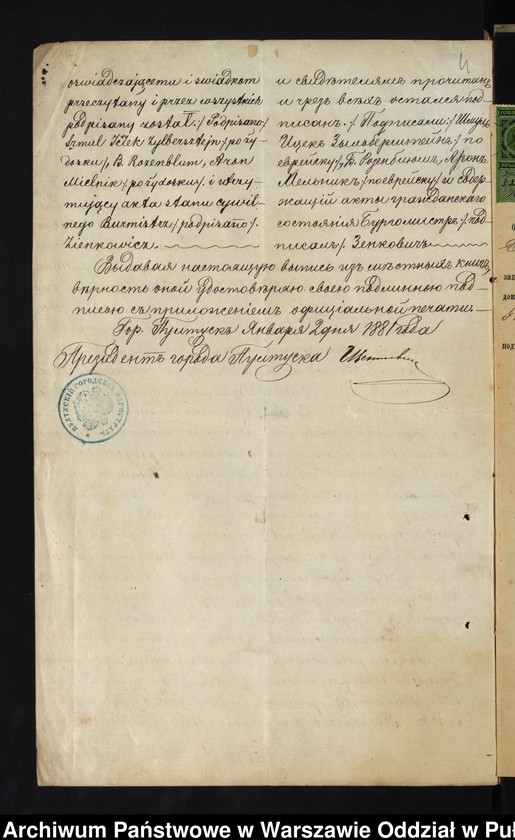 4
oświadczającemu i świadkom
przeczytany i przez wszystkich
podpisany został. /Podpisano/
Szmul Icek Zylbersztejn /po ży-
dosku/, B. Rozenblum, Aron
Mielnik /po żydosku/. i utrzy-
mujący akta stanu cywil-
nego Burmistrz /podpisano/.
Zienkowicz.
и свидѣтелямъ прочитанъ
и чрезъ всѣхъ остался под-
писанъ. /Подписали:/ Шмуль
Ицекъ Зыльберштейнъ /по
еврейску/, Б. Розенблюмъ, Аронъ
Мельникъ /по еврейску/ и содер-
жащій акты гражданскаго
состоянія Бургомистръ /под-
писалъ/ Зенковичъ
Выдавая настоящую выпись изъ мѣстныхъ книгъ,
вѣрность оной удостовѣряю своею подлинною под-
писью съ приложеніемъ официальной печати.
Гор. Пултускъ Января 2 дня 1881 года
Президентъ города Пултуска
ПУЛТУСКІЙ ГОРОДСКІЙ МАГИСТРАТЪ
Archiwum Państwowe w Warszawie Oddział w Puł